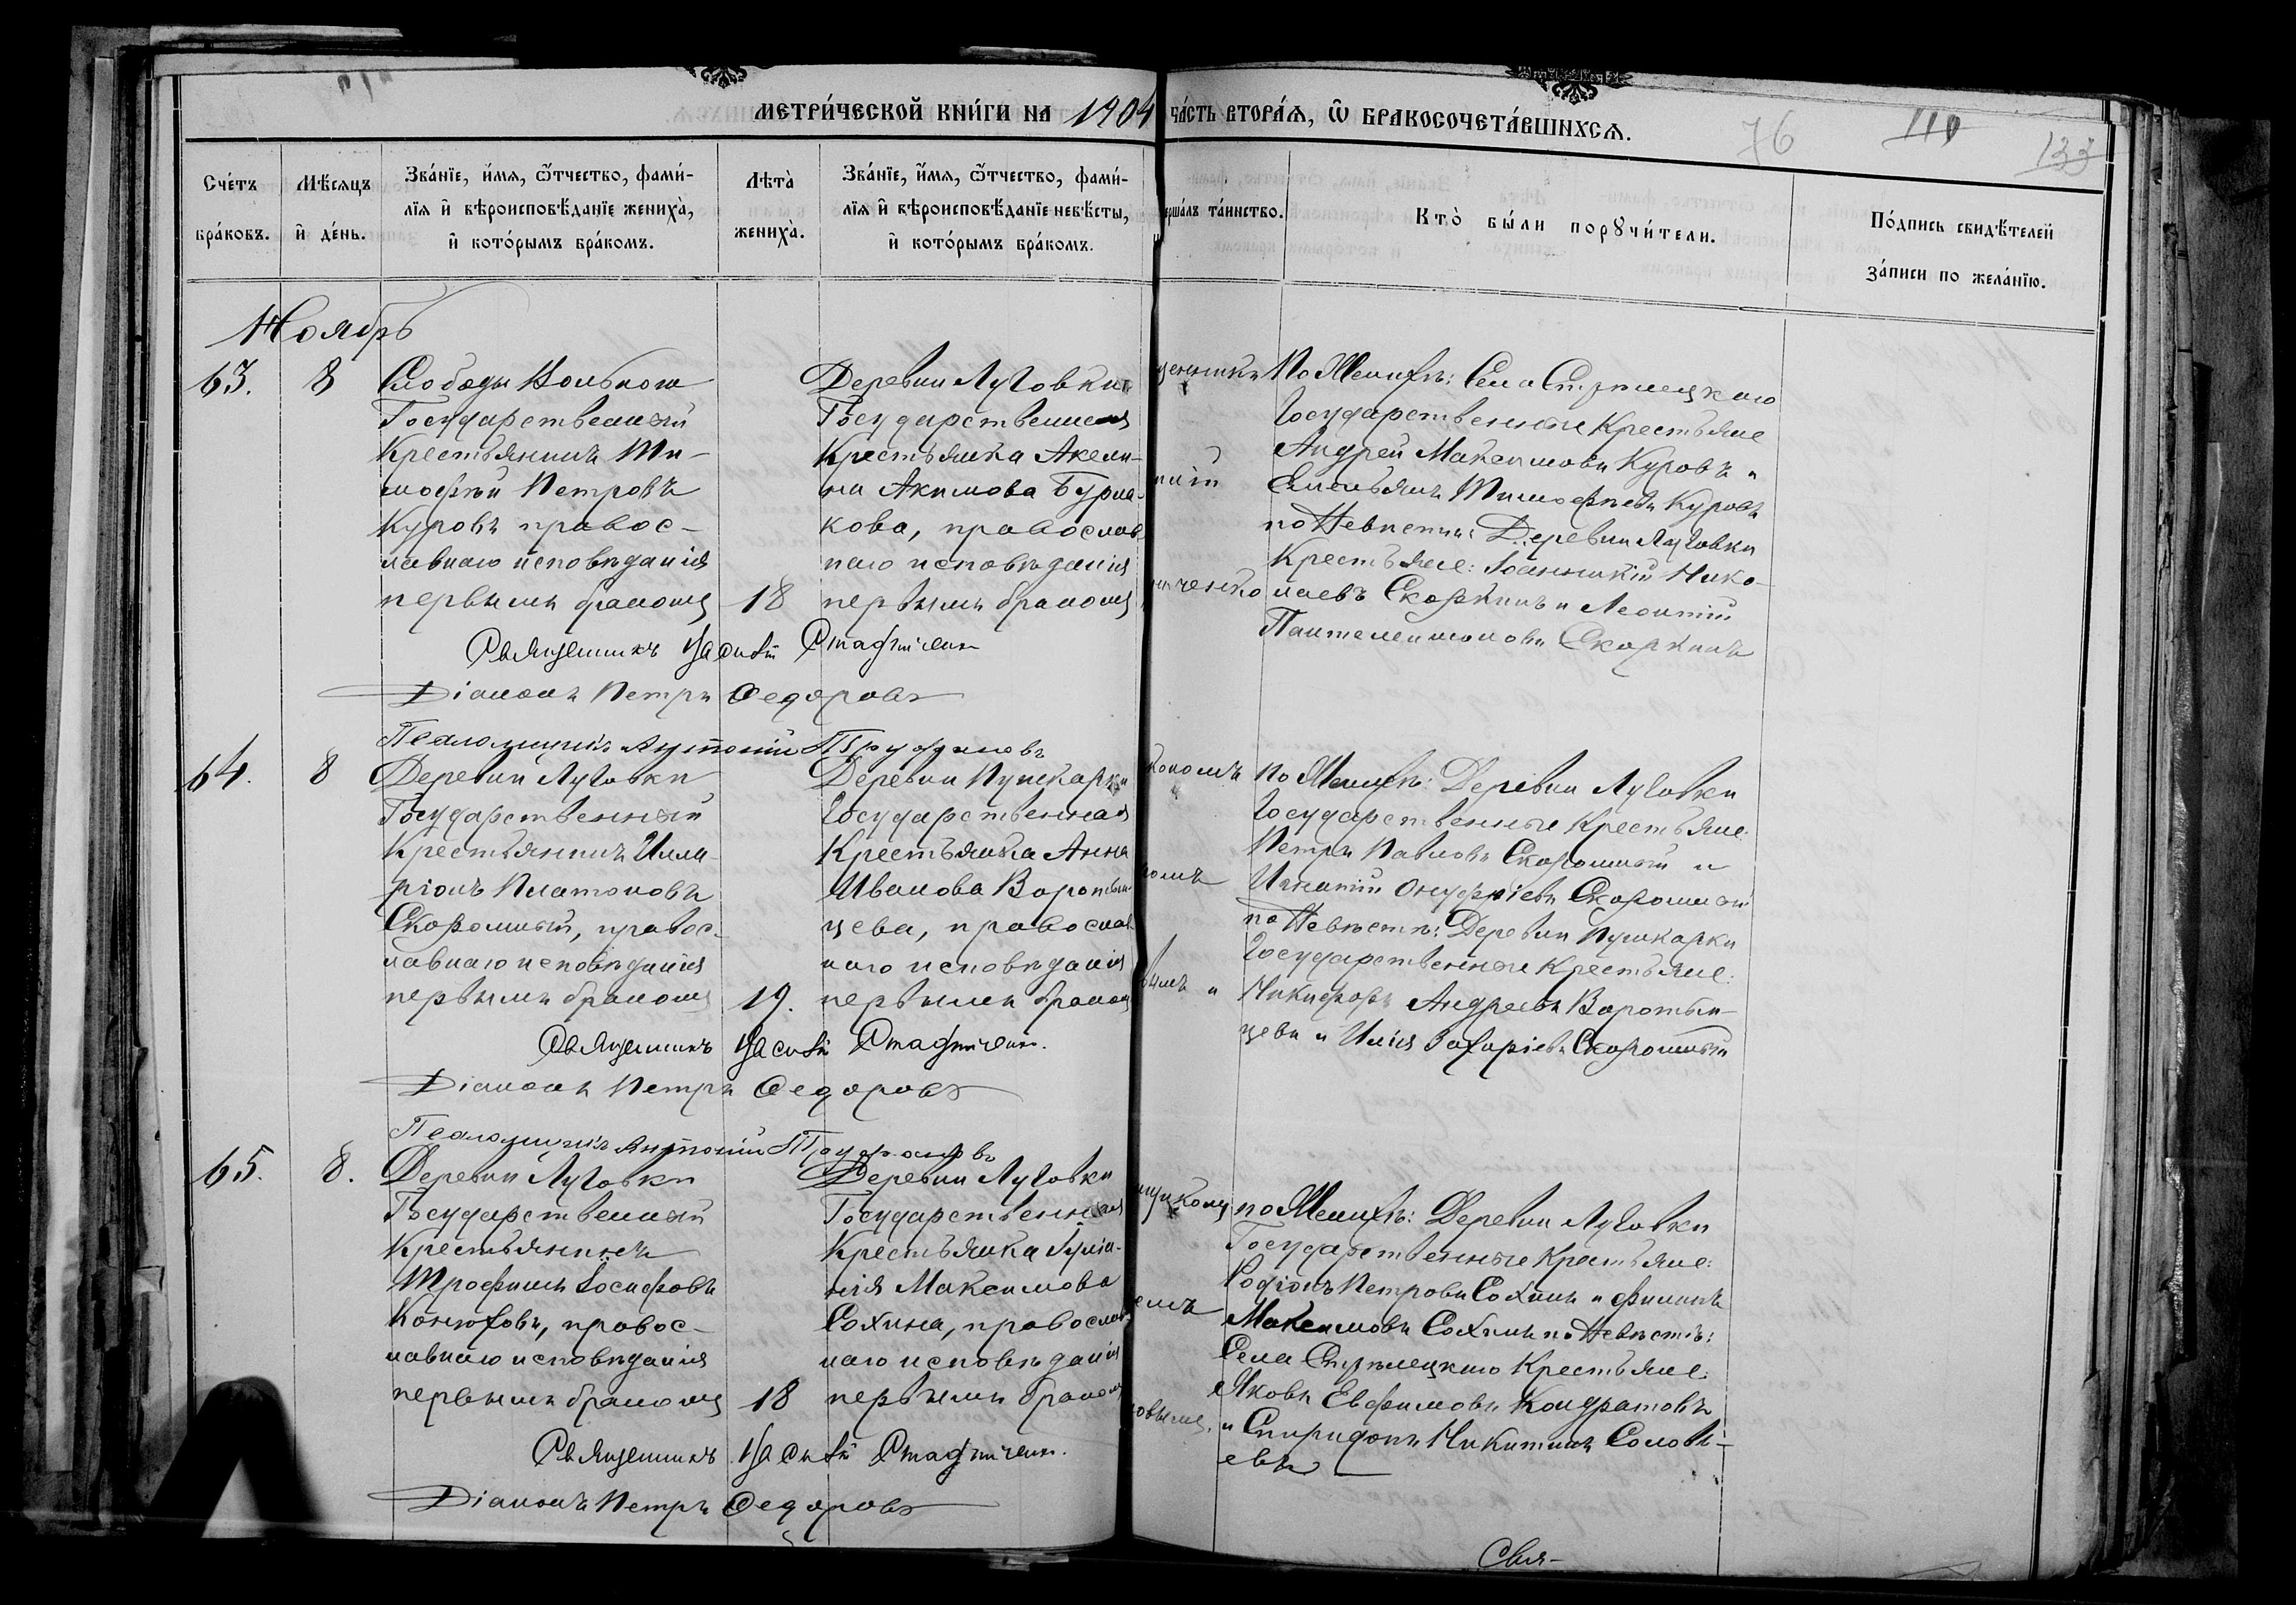 МЕТРИ́ЧЕСКОЙ КНИ́ГИ НА 1904
ЧА́СТЬ ВТОРА́Я, Ѿ БРАКОСОЧЕТА́ВШИХСЯ.
76
110
133
Сче́тъ
бра́ковъ.
Мѣ́сяцъ
и҆ де́нь.
Зва́нїе, и҆́мя, ѻ҆́тчество, фами́-
лїя и҆ вѣроисповѣ́данїе жениха̀,
и҆ кото́рымъ бра́комъ.
Лѣта̀
жениха̀.
Зва́нїе, и҆́мя, ѻ҆́тчество, фами́-
лїя и҆ вѣроисповѣ́данїе невѣ́сты,
и҆ кото́рымъ бра́комъ.
ерша́лъ та́инство.
Кто̀ бы́ли порꙋчи́тели.
По́дпись свидѣ́телей
за́писи по жела́нїю.
Ноябрь
63.
8
Слободы Вольного
Государственный
Крестьянинъ Ти-
мофей Петровъ
Куровъ правос-
лавнаго исповѣданія
первымъ бракомъ
18
Деревни Луговки
Государственная
Крестьянка Акели-
на Акимова Бурна-
кова, православ
наго исповѣданія
первымъ бракомъ
щенникъ
По Женихѣ: Села Стрѣлецкаго
Государственные Крестьяне
Андрей Максимовъ Куровъ и
Емельянъ Тимофѣевъ Куровъ
по Невѣстѣ: Деревни Луговки
Крестьяне: Іоанникій Нико-
лаевъ Скоркинъ и Леонтій
Пантелеимоновъ Скоркинъ
Священникъ
Діаконъ Петръ Федоровъ
Псаломщикъ Антоній Труфановъ
64.
8
Деревни Луговки
Государственный
Крестьянинъ Илла-
ріонъ Платоновъ
Скоромный, правос-
лавнаго исповѣданія
первымъ бракомъ
19.
Деревни Пушкарки
Государственная
Крестьянка Анна
Иванова Воротын-
цева, православ
наго исповѣданія
первымъ браком
По Женихѣ: Деревни Луговки
Государственные Крестьяне:
Петръ Павловъ Скоромный и
Игнатій Онуфріевъ Скоромный
по Невѣстѣ: Деревни Пушкарки
Государственные Крестьяне:
Никифоръ Андреевъ Воротын-
цевъ и Илія Захаріевъ Скоромный
Священникъ
Діаконъ Петръ Федоровъ
Псаломщикъ Антоній Труфановъ
65.
8.
Деревни Луговки
Государственный
Крестьянинъ
Трофимъ Іосифовъ
Конюховъ, правос-
лавнаго исповѣданія
первымъ бракомъ
18
Деревни Луговки
Государственная
Крестьянка Іуліа-
нія Максимова
Сохина, православ
наго исповѣданія
первымъ браком
по Женихѣ: Деревни Луговки
Государственные Крестьяне:
Родіонъ Петровъ Сохинъ и Филипъ
Максимовъ Сохинъ по Невѣстѣ:
Села Стрѣлецкаго Крестьяне:
Яковъ Евфимовъ Кондратовъ
и Спиридонъ Никитинъ Соловь-
евъ
Священникъ
Діаконъ Петръ Федоровъ
Свя-